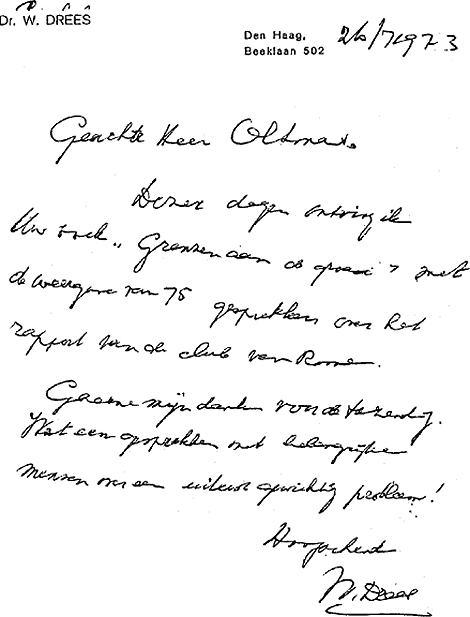 Dr. W. DREES
Den Haag,
Beeklaan 502
26/7 1973
Geachte Heer Oltmans.
Dezer dagen ontving ik
Uw boek „Grenzen aan de groei" met
de weergave van 75 gesprekken over het
rapport van de club van Rome.
Gaarne mijn dank voor de toezending.
Wat een gesprekken met belangrijke
mensen over een uiterst gewichtig probleem!
Hoogachtend
W. Drees